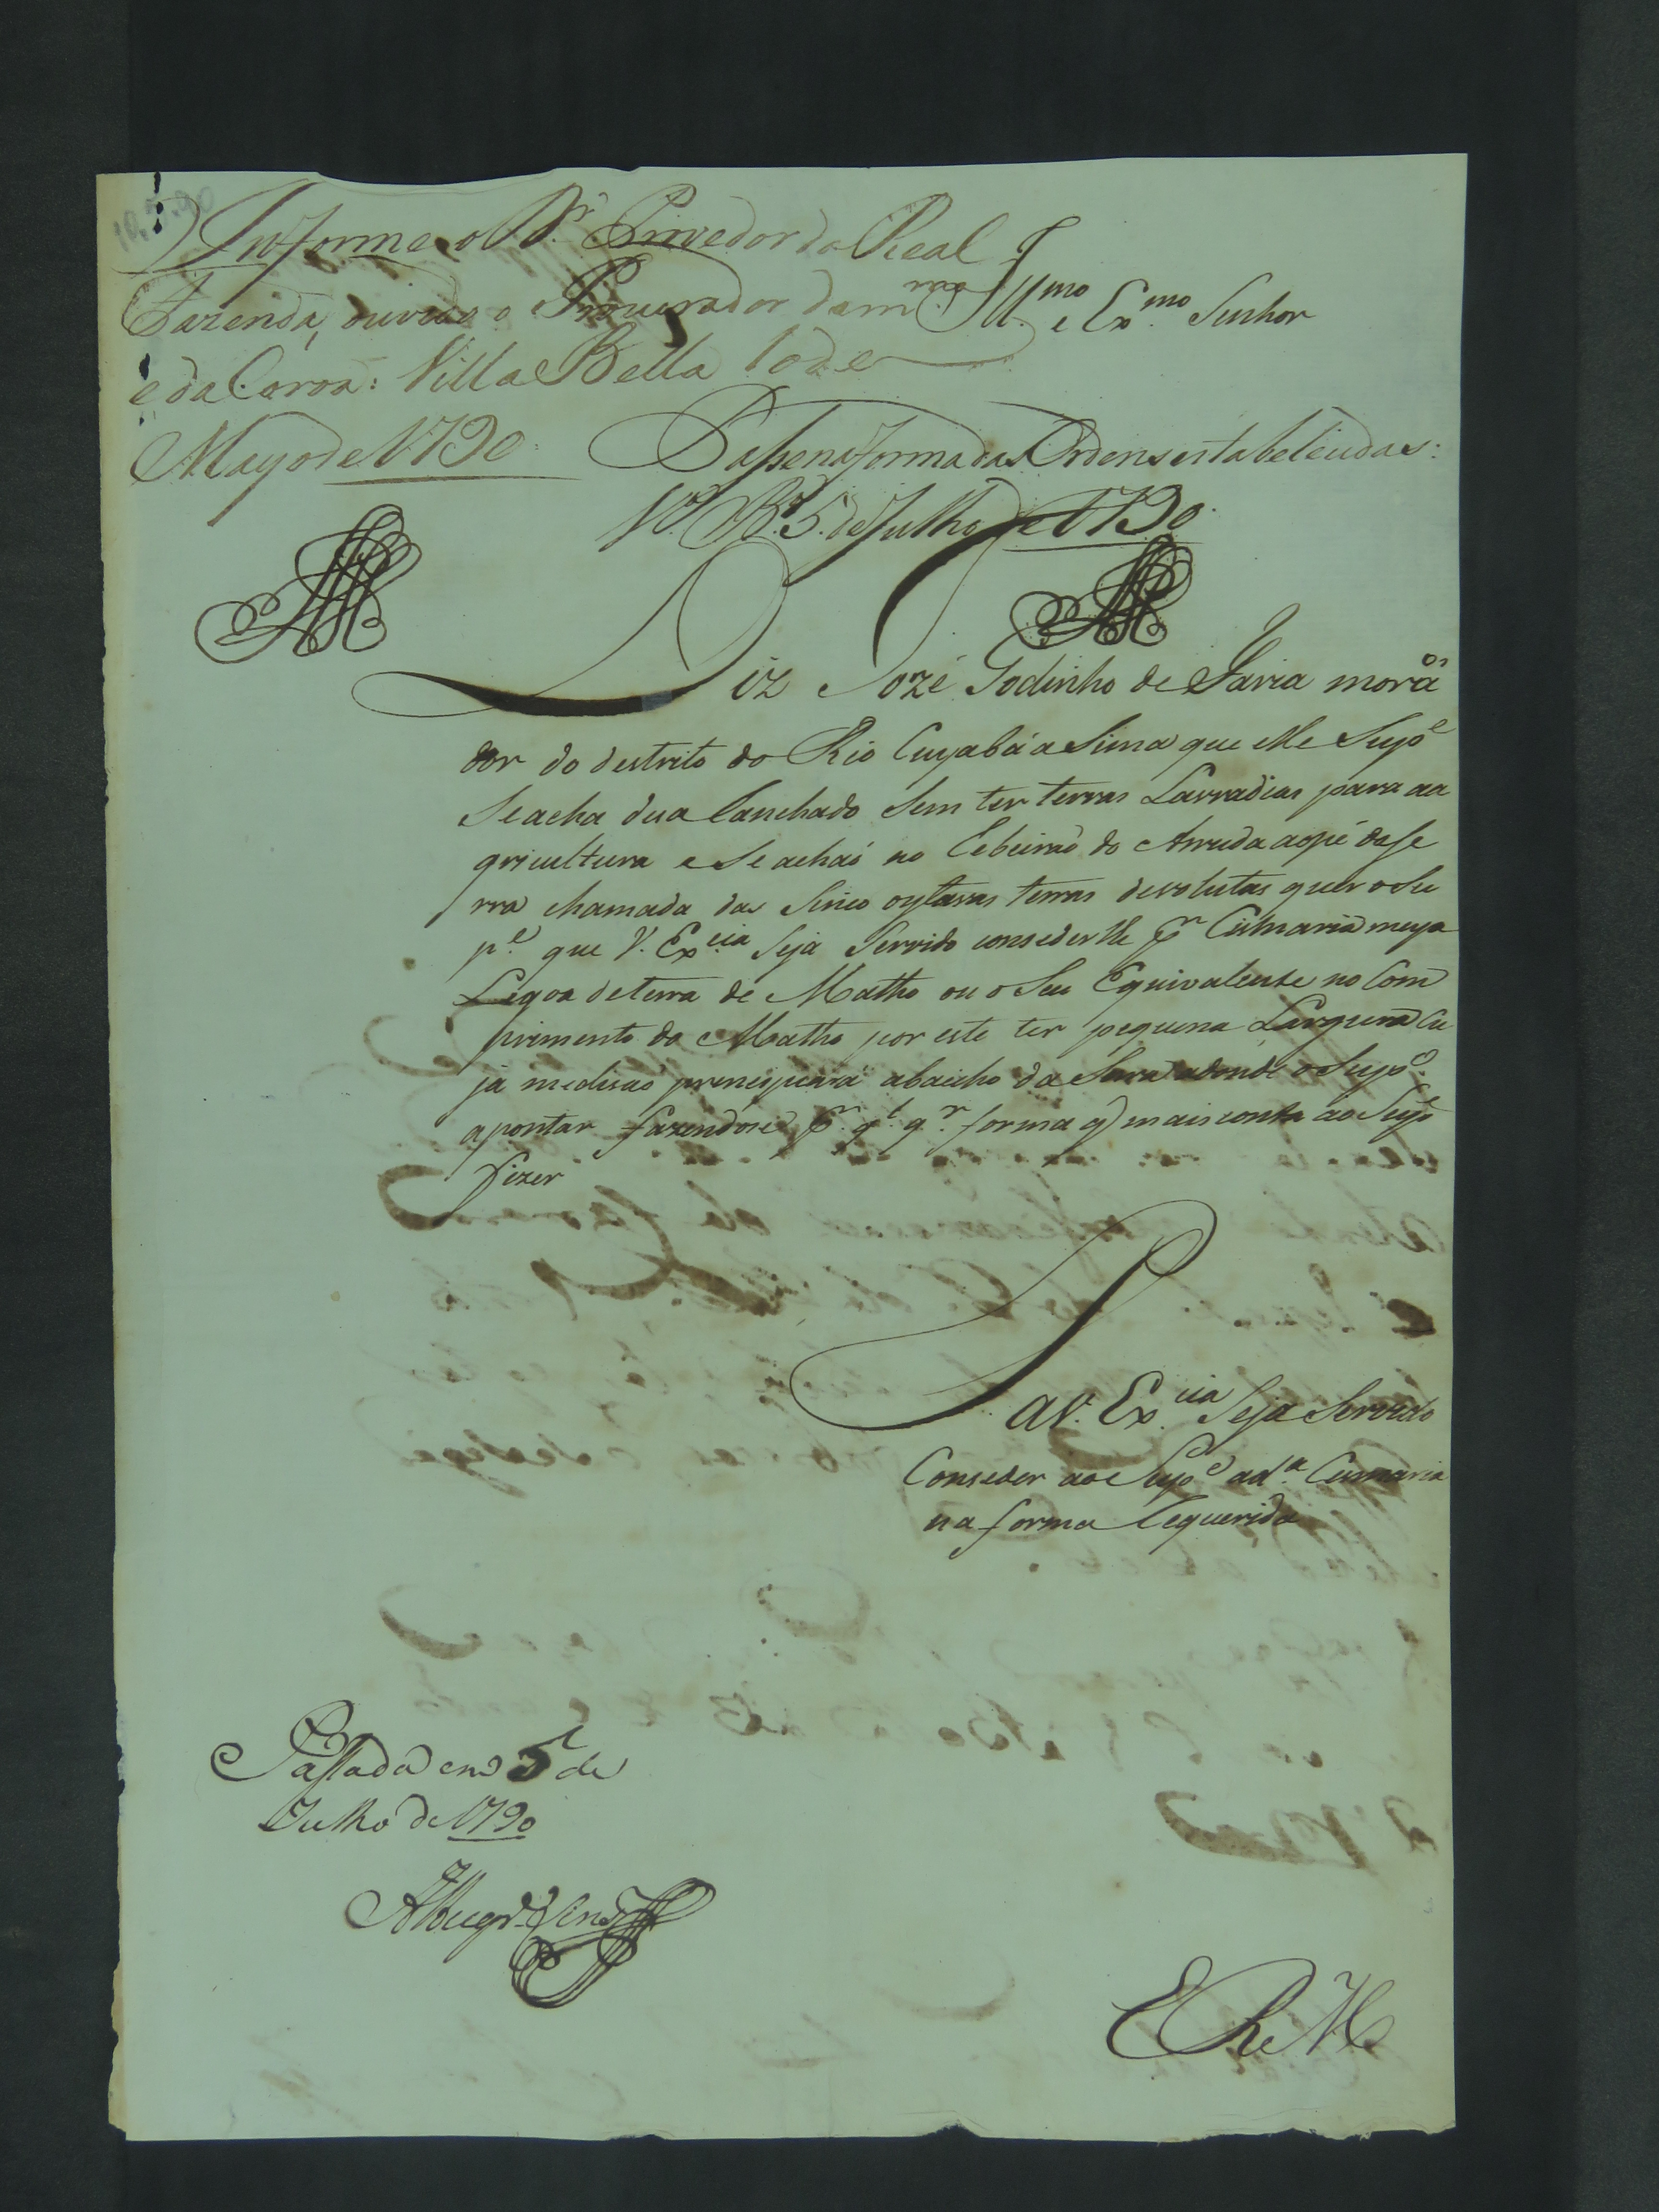 Informe o Dr. Provedor da Real
Fazenda, ouvido o Procurador da mma
e da Coroa: Villa Bella 10 de
Mayo de 1790
Illmo e Exmo Senhor
Passe na forma das Ordens estabelecidas:
Va. Ba. 5. de Julho de 1790
Diz Jozé Godinho de Faria mora
dor do destrito do Rio Cuyabá a sima que elle Supe
Se acha desa Ranchado Sem ter terras Lavradias para aa
gricultura e Se achaõ no Rebeiraõ do Arruda aopé da Se
rra chamada das Sinco oytavas terras devolutas quer o Su
pe que V. Excia Seja Servido consederlhe Pr Cismaria meya
Legoa de terra de Matho ou o Seu Equivalente no Com
primento do Matho por este ter pequena Largura Cu
ja medisaõ prencipiará abaicho da Serra adonde o Supe.
apontar fazendose Pr. ql. qr. forma q mais conta ao Supe
fizer
P
a V. Excia Seja Servido
Conseder ao Supe a da. Cismaria
na forma Requerida
Passada em 5 de
Julho de 1790
E R Mce